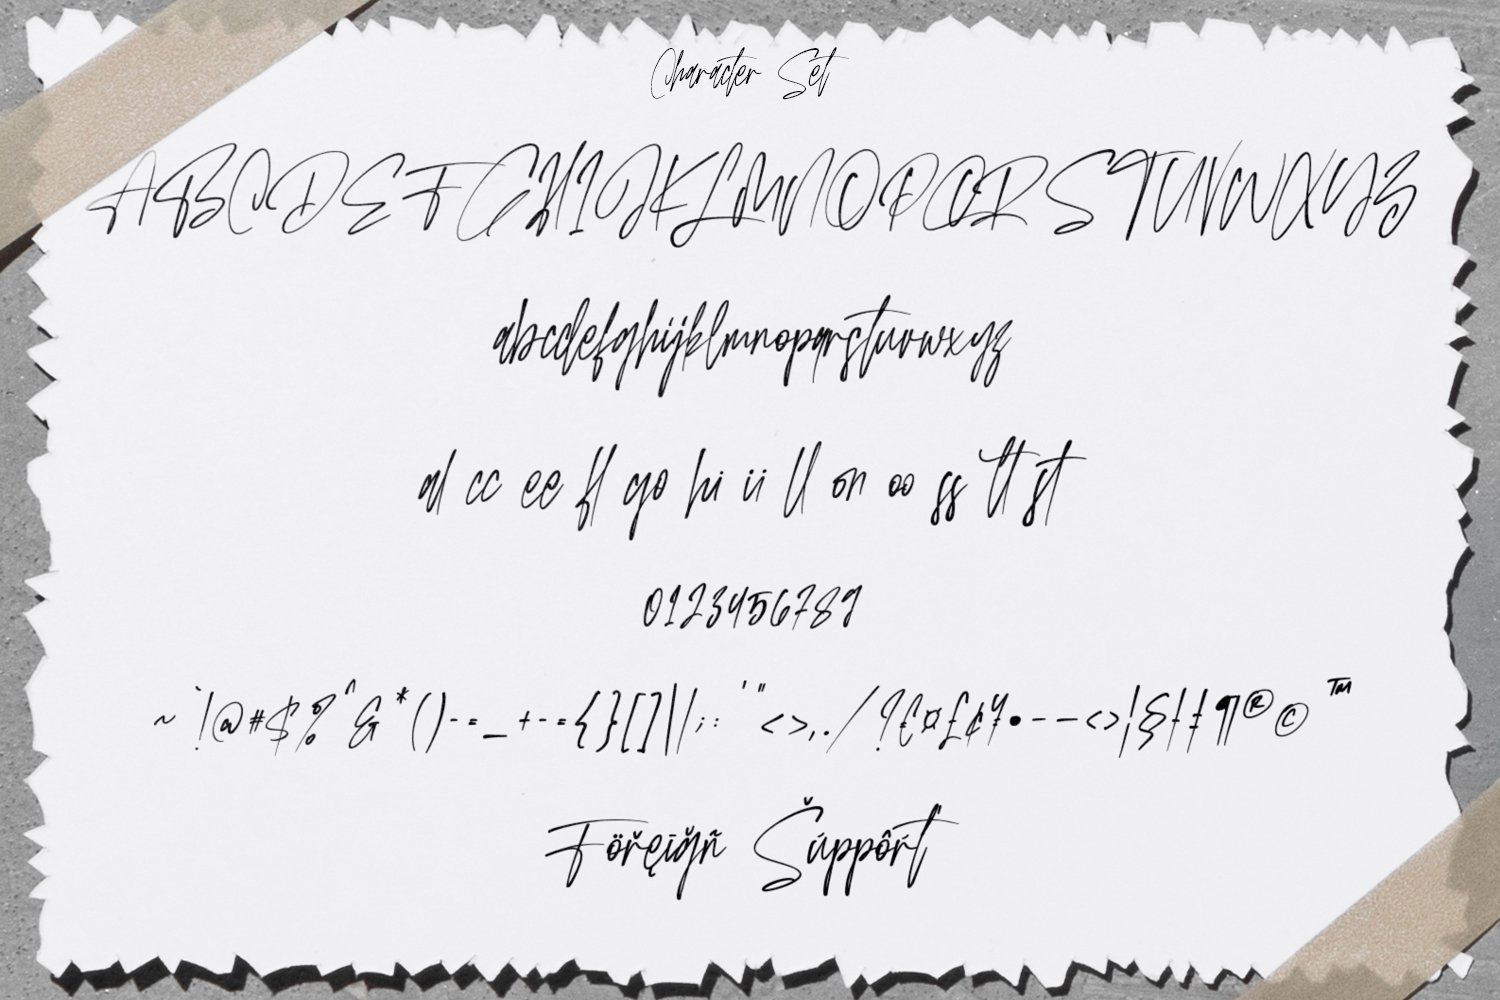 Character Set
ABCDEFGHIJKLMNOPQRSTUVWXYZ
abcdefghijklmnopqrstuvwxyz
al cc ee fl go hi ii ll on oo ss tt st
0123456789
~`!@#$%^&*()-=_+-={}[]\|;:'"<>,./?€¤£¢¥•–—<>¦§†‡¶®©™
Föřęīğñ Šúppôŕt